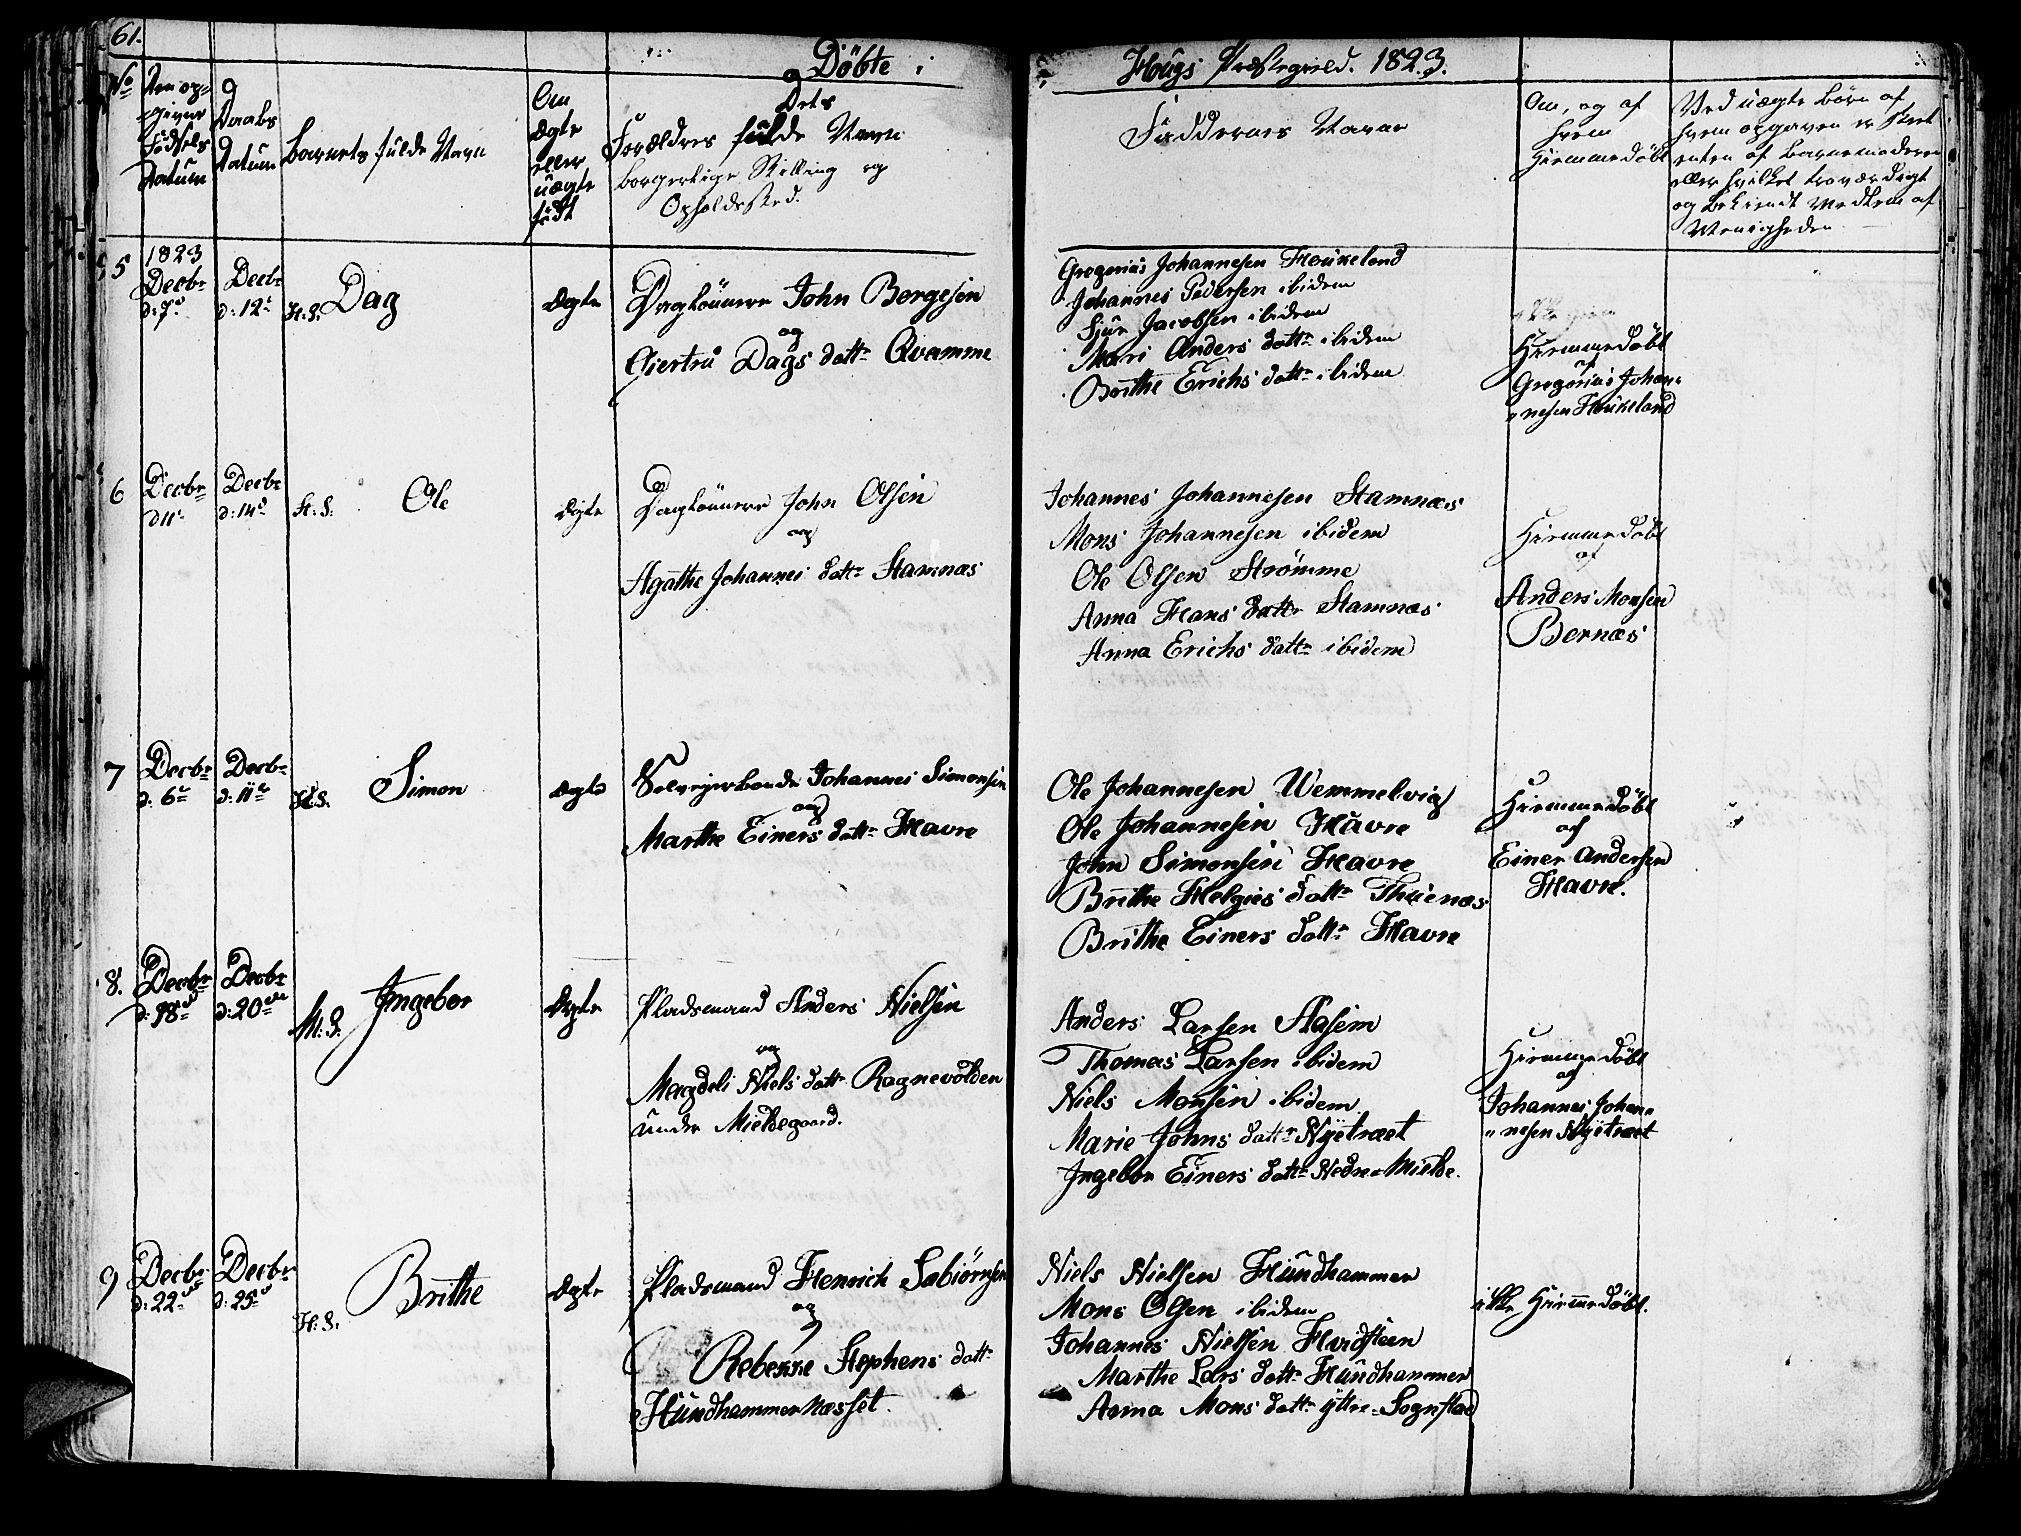 61.
Döbte i
Hougs Præstegield. 1823.
No
Den op-
givne
Fødsels
Datum
Daabs
Datum
Barnets fulde Navn
Om
ægte
eller
uægte
født
Dets
Forældres fulde Navn
borgerlige Stilling og
Opholdssted.
Faddernes Navne
Om, og af
hvem
Hiemmedöbt
Ved uægte børn af
hvem opgaven er skeet
enten af barnemoderen
eller hvilket troværdigt
og bekiendt Medlem af
Menigheden
5
1823
Decbr
d: 7de
Decbr
d: 12te
H.S.
Dag
ægte
Daglönnere John Börgesen
og
Giertru Dags datter Qvamme
Gregorius Johannesen Houkeland
Johannes Pedersen ibidem
Sjur Jacobsen ibidem
Mari Anders datter ibidem
Brithe Erichs datter ibidem
Hiemmedöbt
af
Gregorius Johan-
nesen Houkeland
6
Decbr
d 11te
Decbr
d: 14de
H: S.
Ole
ægte
Daglönnere John Olsen
og
Agathe Johannes datter Stamnæs
Johannes Johannesen Stamnæs
Mons Johannesen ibidem
Ole Olsen Strömme
Anna Hans datter Stamnæs
Anna Erichs datter ibidem
Hiemmedöbt
af
Anders Monsen
Bernæs
7
Decbr
d: 6te
Decbr
d: 11te
H.S.
Simon
ægte
Selveierbonde Johannes Simonsen
og
Marthe Einers datter Havre
Ole Johannesen Wemmelvig
Ole Johannesen Havre
John Simonsen Havre
Brithe Helgies datter Thuenæs
Brithe Einers datter Havre
Hiemmedöbt
af
Einer Andersen
Havre.
8.
Decbr
d: 18de
Decbr
d: 20de
M. S.
Ingebor
ægte
Pladsmand Anders Nielsen
og
Magdeli Niels datter Ragnevolden
under Mieldegaard.
Anders Larsen Aasem
Thomas Larsen ibidem
Niels Monsen ibidem
Marie Johns datter Nyetræet
Ingebor Einers datter Nedre Mielde.
Hiemmedöbt
af
Johannes Johan-
nesen Nyetræet
9
Decbr
d: 22de
Decbr
d: 25de
H: S.
Brithe
ægte
Pladsmand Henrich Sabiörnsen
og
Rebekke Stephens datter
Hundhammernæsset.
Niels Nielsen Hundhammer
Mons Olsen ibidem
Johannes Nielsen Hvidsteen
Marthe Lars datter Hundhammer
Anna Mons datter yttre Sognstad
ikke Hiemmedöbt.